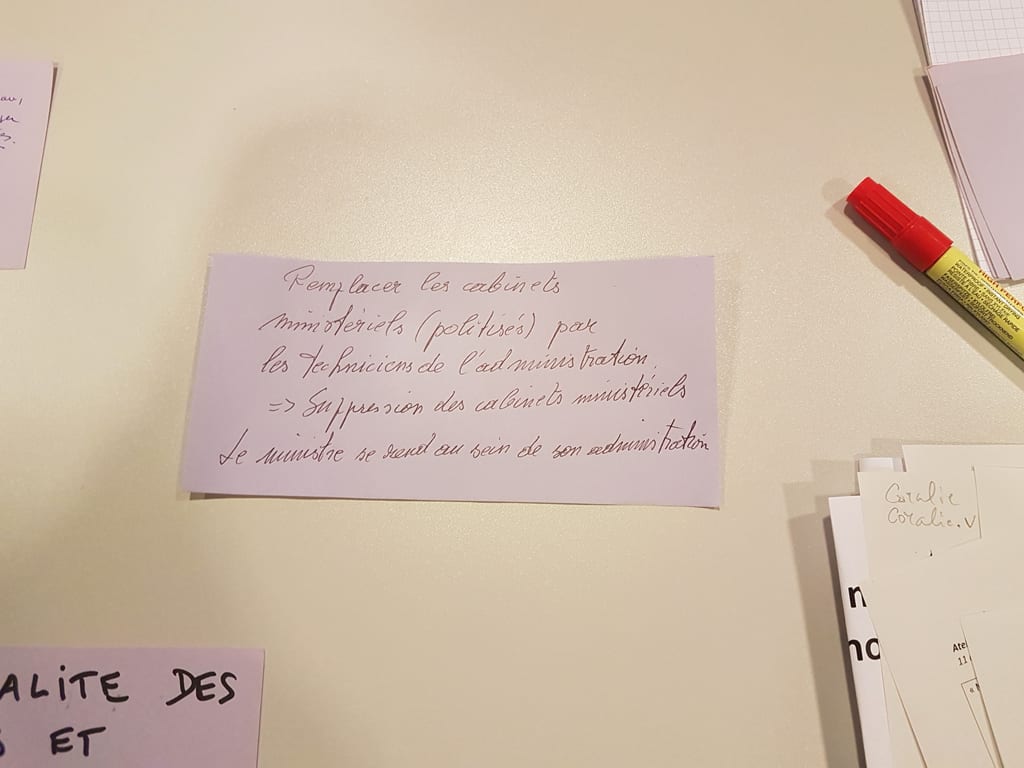 Remplacer les cabinets
ministériels (politisés) par
les techniciens de l'administration.
=> Suppression des cabinets ministériels
Le ministre se rend au sein de son administration
ALITE DES
ET
Coralie
Coralie.V
n
no
Ate
11